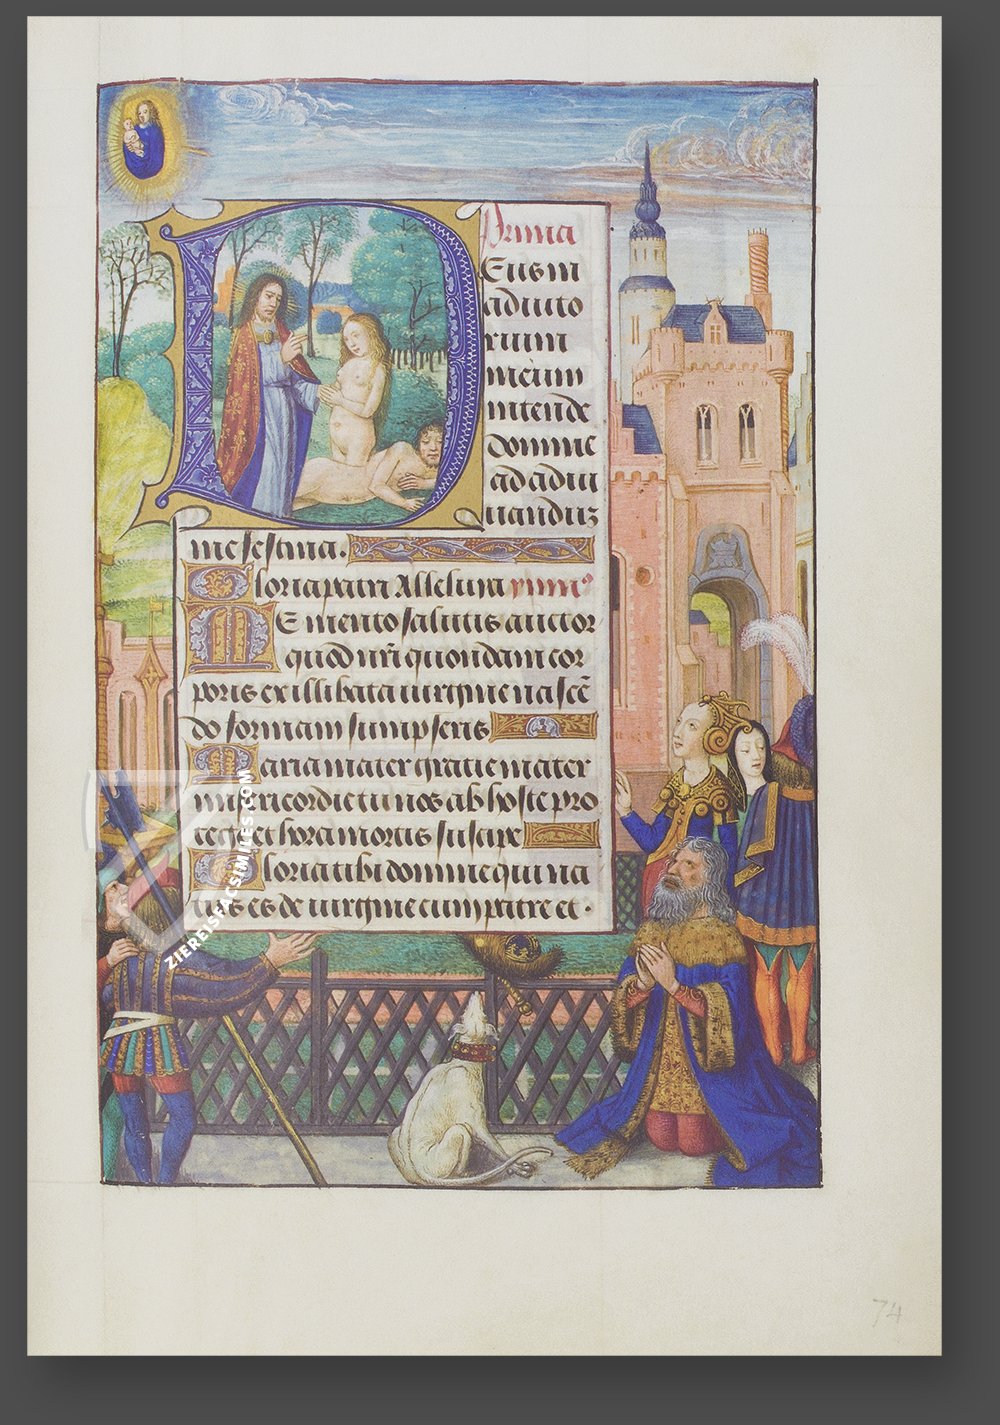 Prima
Eus in
adiuto
rium
meum
intende
domine
ad adiu
uanduz
me festina.
Gloria patri Allelura ymnꝰ
Memento salutis auctor
quod nr̄i quondam cor
poris ex illibata uirgine nascē
do formam sumpseris
Maria mater gratie mater
misericordie tu nos ab hoste pro
tege et hora mortis suscipe
Gloria tibi domine qui na
tus es de uirgine cum patre et .
ZIEREISFACSIMILES.COM
74